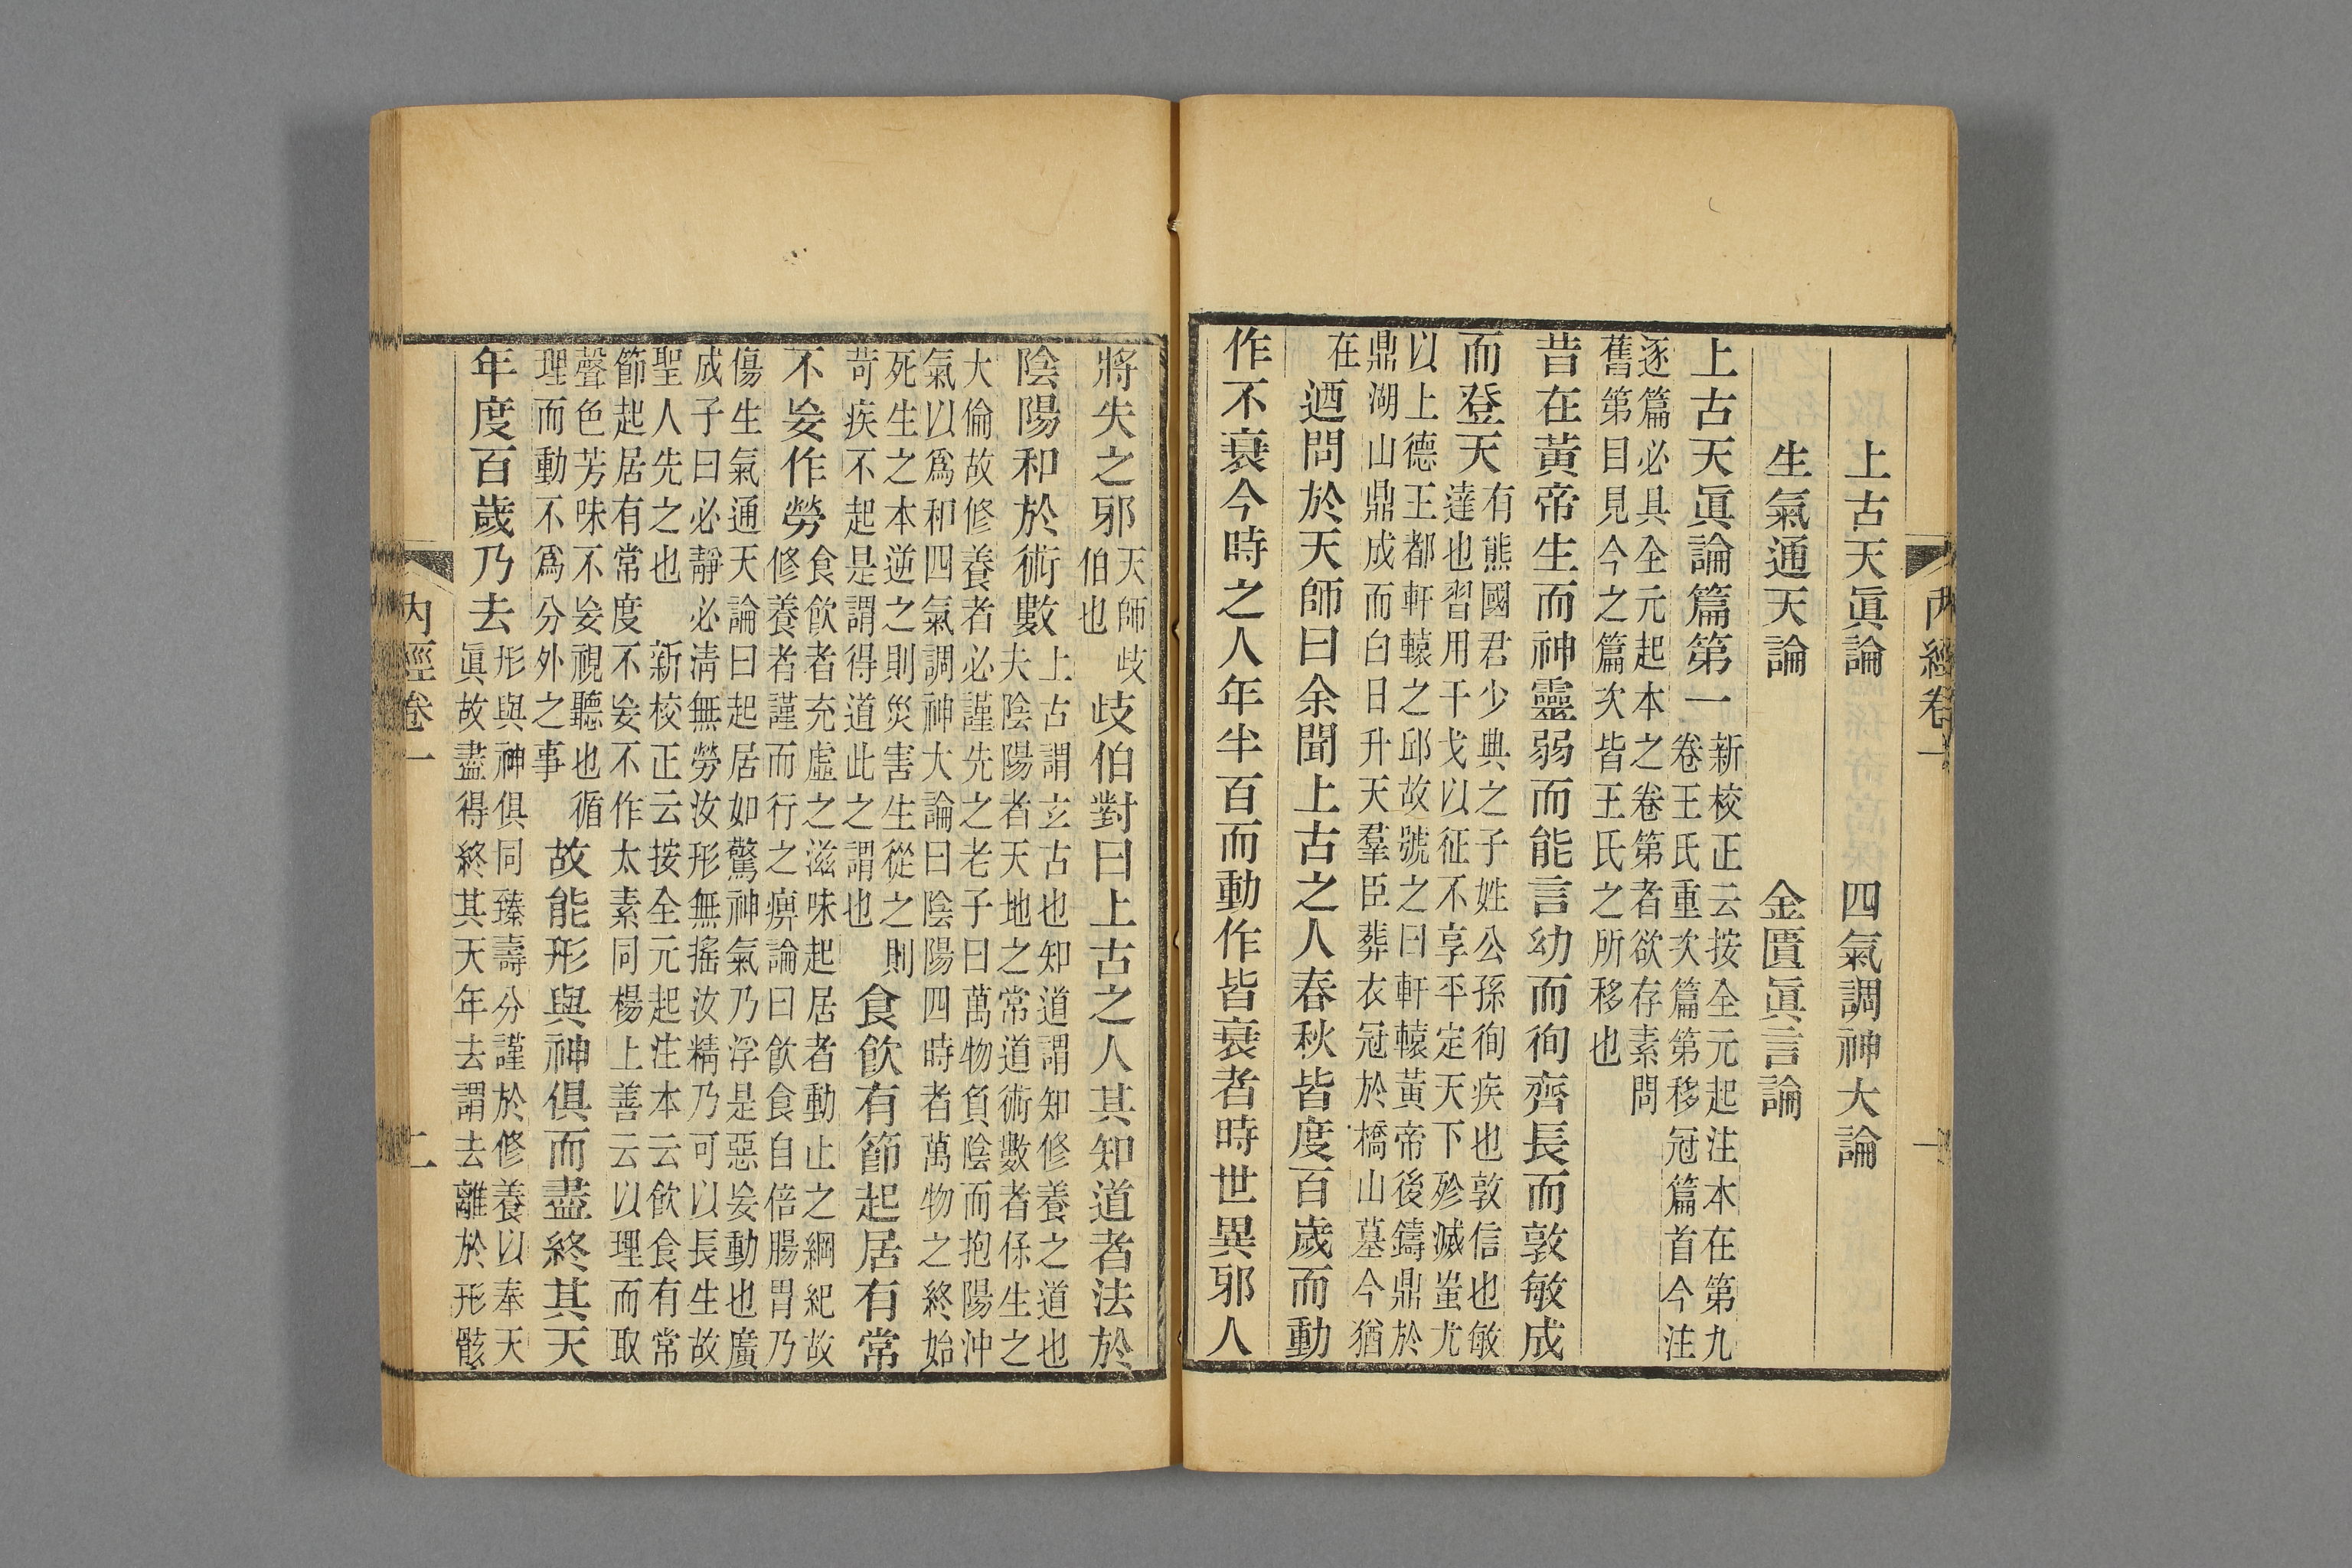 內經卷一
一
上古天眞論　四氣調神大論
生氣通天論　金匱眞言論
上古天眞論篇第一
新校正云按全元起注本在第九
卷王氏重次篇第移冠篇首今注
逐篇必具全元起本之卷第者欲存素問
舊第目見今之篇次皆王氏之所移也
昔在黃帝生而神靈弱而能言幼而徇齊長而敦敏成
而登天
有熊國君少典之子姓公孫徇疾也敦信也敏
達也習用干戈以征不享平定天下殄滅蚩尤
以上德王都軒轅之邱故號之曰軒轅黃帝後鑄鼎於
鼎湖山鼎成而白日升天羣臣葬衣冠於橋山墓今猶
在
迺問於天師曰余聞上古之人春秋皆度百歲而動
作不衰今時之人年半百而動作皆衰者時世異邪人
將失之邪
天師歧
伯也
歧伯對曰上古之人其知道者法於
陰陽和於術數
上古謂玄古也知道謂知修養之道也
夫陰陽者天地之常道術數者保生之
大倫故修養者必謹先之老子曰萬物負陰而抱陽沖
氣以爲和四氣調神大論曰陰陽四時者萬物之終始
死生之本逆之則災害生從之則
苛疾不起是謂得道此之謂也
食飲有節起居有常
不妄作勞
食飲者充虛之滋味起居者動止之綱紀故
修養者謹而行之痹論曰飲食自倍腸胃乃
傷生氣通天論曰起居如驚神氣乃浮是惡妄動也廣
成子曰必靜必淸無勞汝形無搖汝精乃可以長生故
聖人先之也　新校正云按全元起注本云飲食有常
節起居有常度不妄不作太素同楊上善云以理而取
聲色芳味不妄視聽也循
理而動不爲分外之事
故能形與神俱而盡終其天
年度百歲乃去
形與神俱同臻壽分謹於修養以奉天
眞故盡得終其天年去謂去離於形骸
內經卷一
二